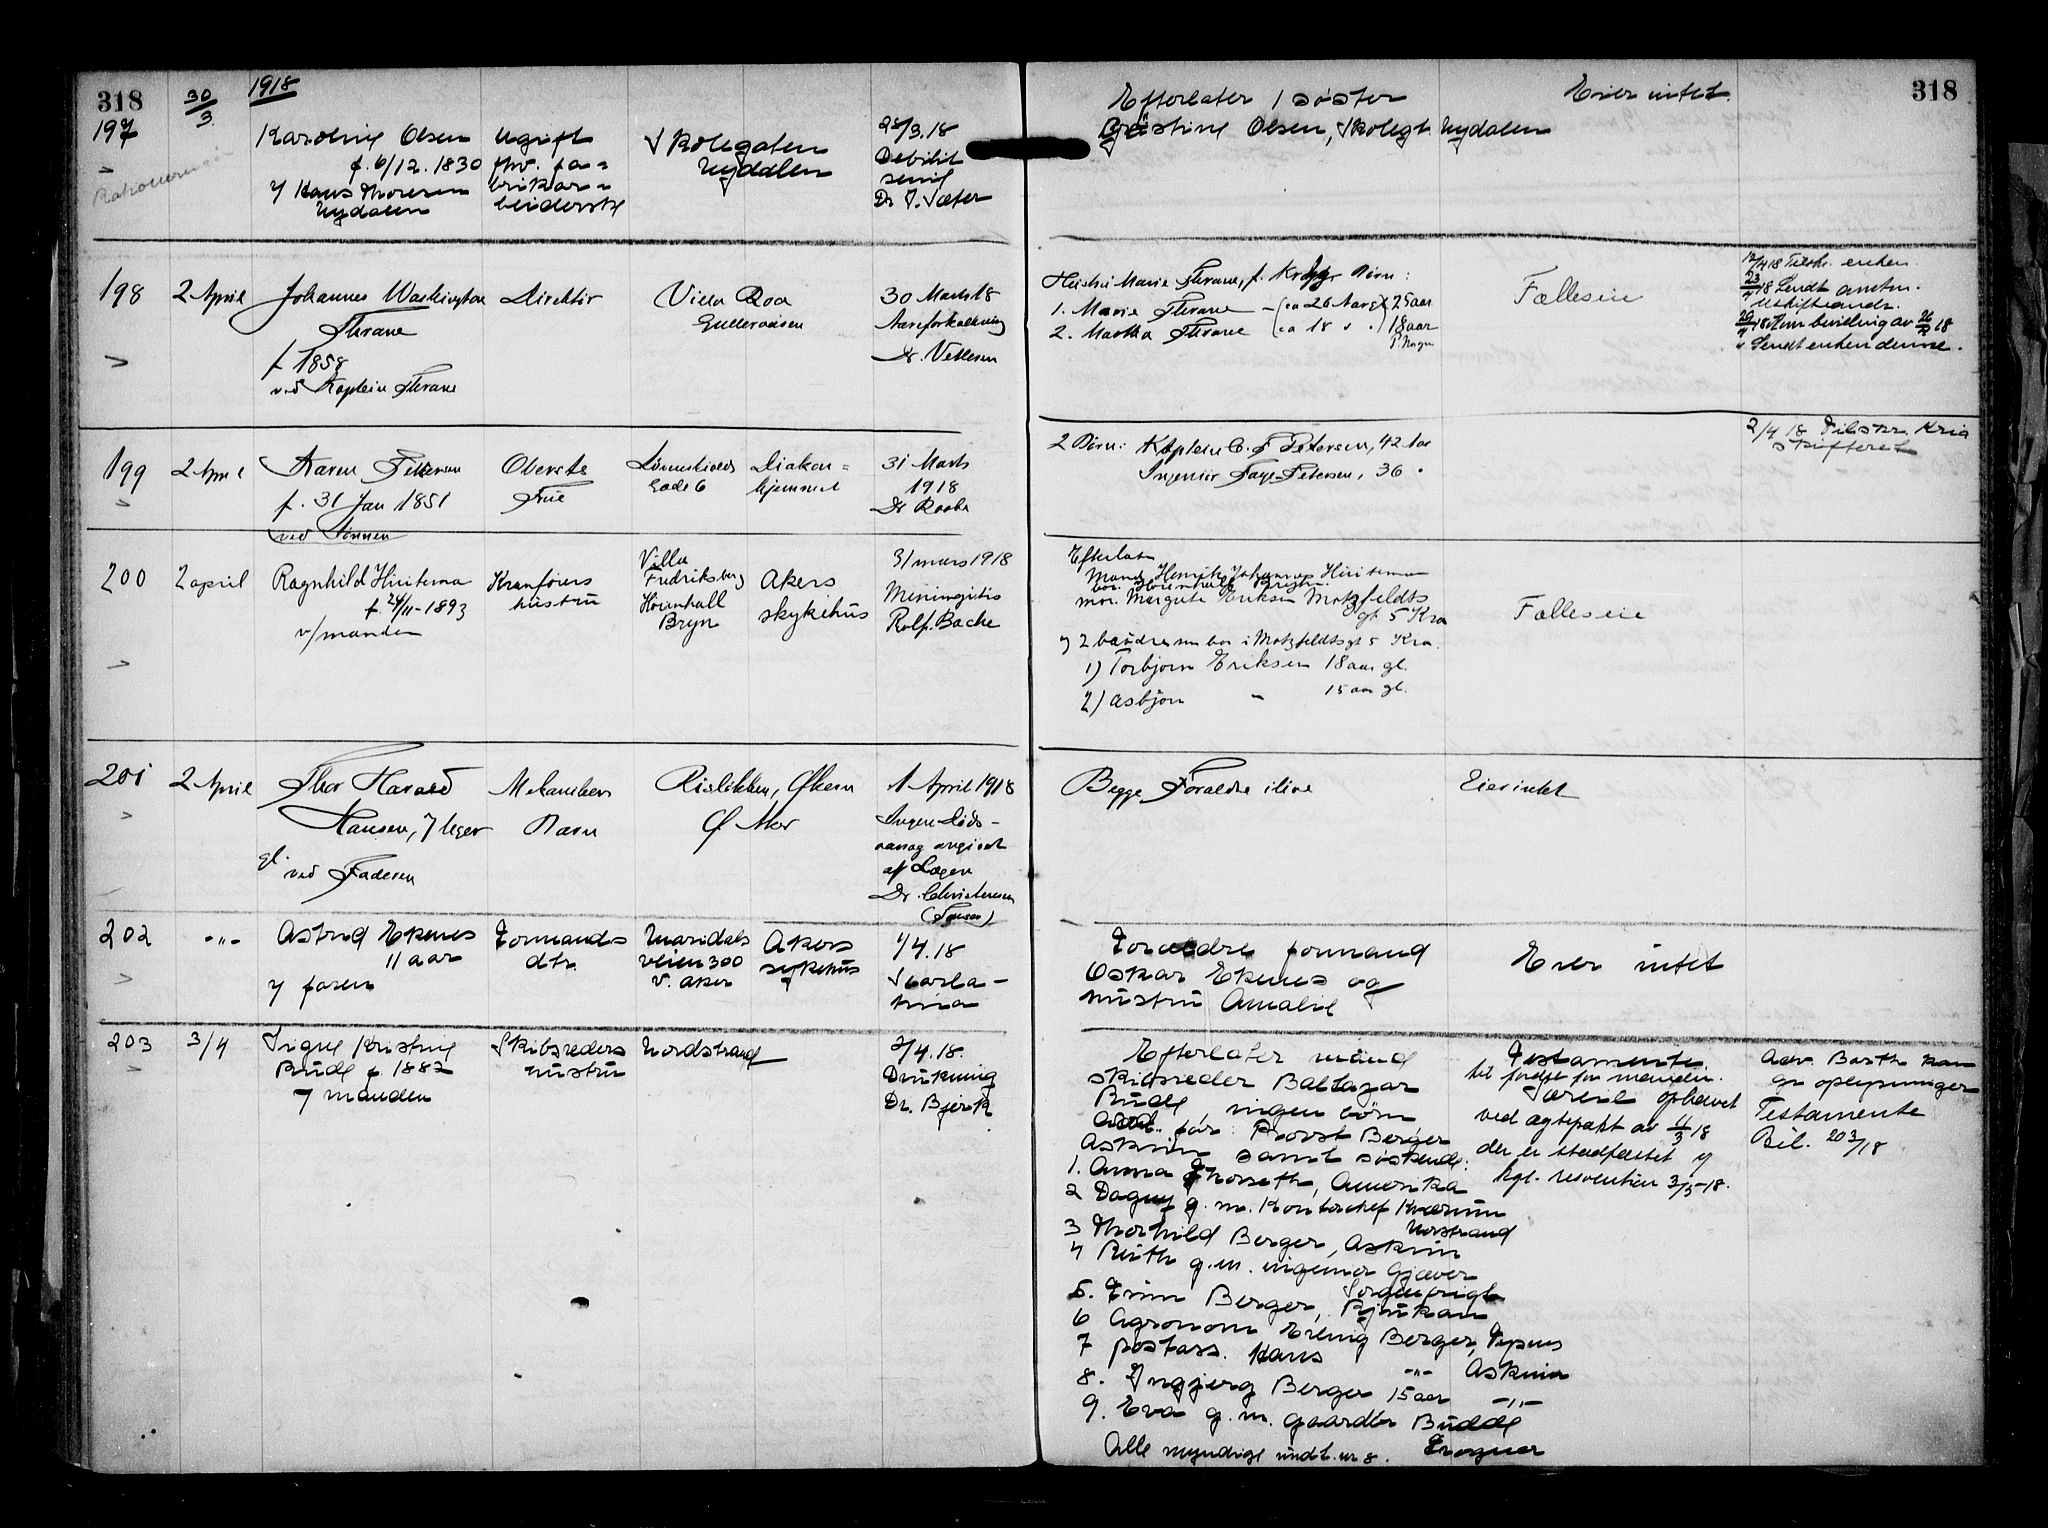 318
30/3
1918
197
Karoline Olsen
f. 6/12. 1830
v/ Hans Thoresen
Nydalen
Ugift
fhv. fa=
brikar=
beiderske
Skolegaten
Nydalen
28/3.18
Debilit
senil
Dr J. Sæter
198
2 April
Johannes Washington
Thrane
f 1858
ved Kaptein Thrane
Direktør
Villa Roa
Gulleraasen
30 Marts 18
Aareforkalkning
Dr. Vetlesen
199
2 April
Karen Petersen
f. 31 Jan 1851
ved Sønnen
Oberste
Frue
Gade 6
Diakon=
hjemmet
31 Marts
1918
Dr Raabe
200
2 april
Ragnhild Hiitema
f. 24/11-1893
v/manden
Kranførers
hustru
Villa
Fredriksberg
Høienhall
Bryn
Akers
sykehus
31 mars 1918
Meningitis
Rolf. Bache
201
2 April
Thor Harald
Hansen, 7 uger
gl.
ved Faderen
Mekanikers
Barn
Risløkken, Økern
Ø Aker
1 April 1918
Ingen Døds-
aarsag angivet
af Lægen
Dr. Christensen
202
-"-
Astrid Ekenes
11 aar
v/ faren
Formands
dtr.
Maridals
veien 300
V. Aker
Akers
sykehus
1/4.18
Skarla-
tina
203
3/4
Signe Kristine
Budde f 1882
v/ manden
Skibsreders
hustru
Nordstrand
2/4.18.
Drukning
Dr. Bjerk
318
Efterlater 1 søster
Kristine Olsen, Skolegt Nydalen
Eier intet.
Hustru Marie Thrane, f. Børn:
1. Marie Thrane - (ca 26 Aar) 25 aar
2. Martha Thrane (ca 18) 18 aar
Fælleseie
12/4 18 Tilskr. enken.
23/4 18 Sendt amtm.
Uskifteandr.
" Sendt enken denne.
2 Børn: Kaptein C. F Petersen, 42 Aar
Ingeniør Petersen, 36 "
2/4 18 Tilskr. Kria
Skifteret
Efterlater
Mand Henrik Johannes Hiitema
bor. Høienhall Bryn.
mor. Margrete Eriksen Motzfeldts
gt 5 Kra
og 2 brødre som bor i Motzfeldtsgt 5 Kra.
1) Torbjørn Eriksen 18 aar gl.
2) Asbjørn " 15 aar gl.
Fælleseie
Begge Forældre ilive
Eier intet
Forældre formand
Oskar Ekenes og
hustru Amalie
Eier intet
Efterlater mand
skibsreder Baltazar
Budde, ingen børn
far: Provst Berger
Askim samt søskende:
1. Anna Thorseth, Amerika
2 Dagny g. m. Kontorchef Kværum
Norstrand
3 Thorhild Berger, Askim
4 Ruth g.m. ingeniør Gjæver
Sorgenfrigt
5. Finn Berger, Rjukan
6 Agronom Erling Berger,
7 postass. Hans -"- Askim
8. Ingjerg Berger 15 aar -"-
9. Eva g. m. gaardbr Budde
Alle myndige undt. nr 8. Frogner
Testamente
Særeie ophævet
ved ægtepakt av 11/3 18
der er stadfæstet v
kgl. resolution 3/5-18.
Adv. Barth kan
gi oplysninger
Testamente
Bil. 203/18